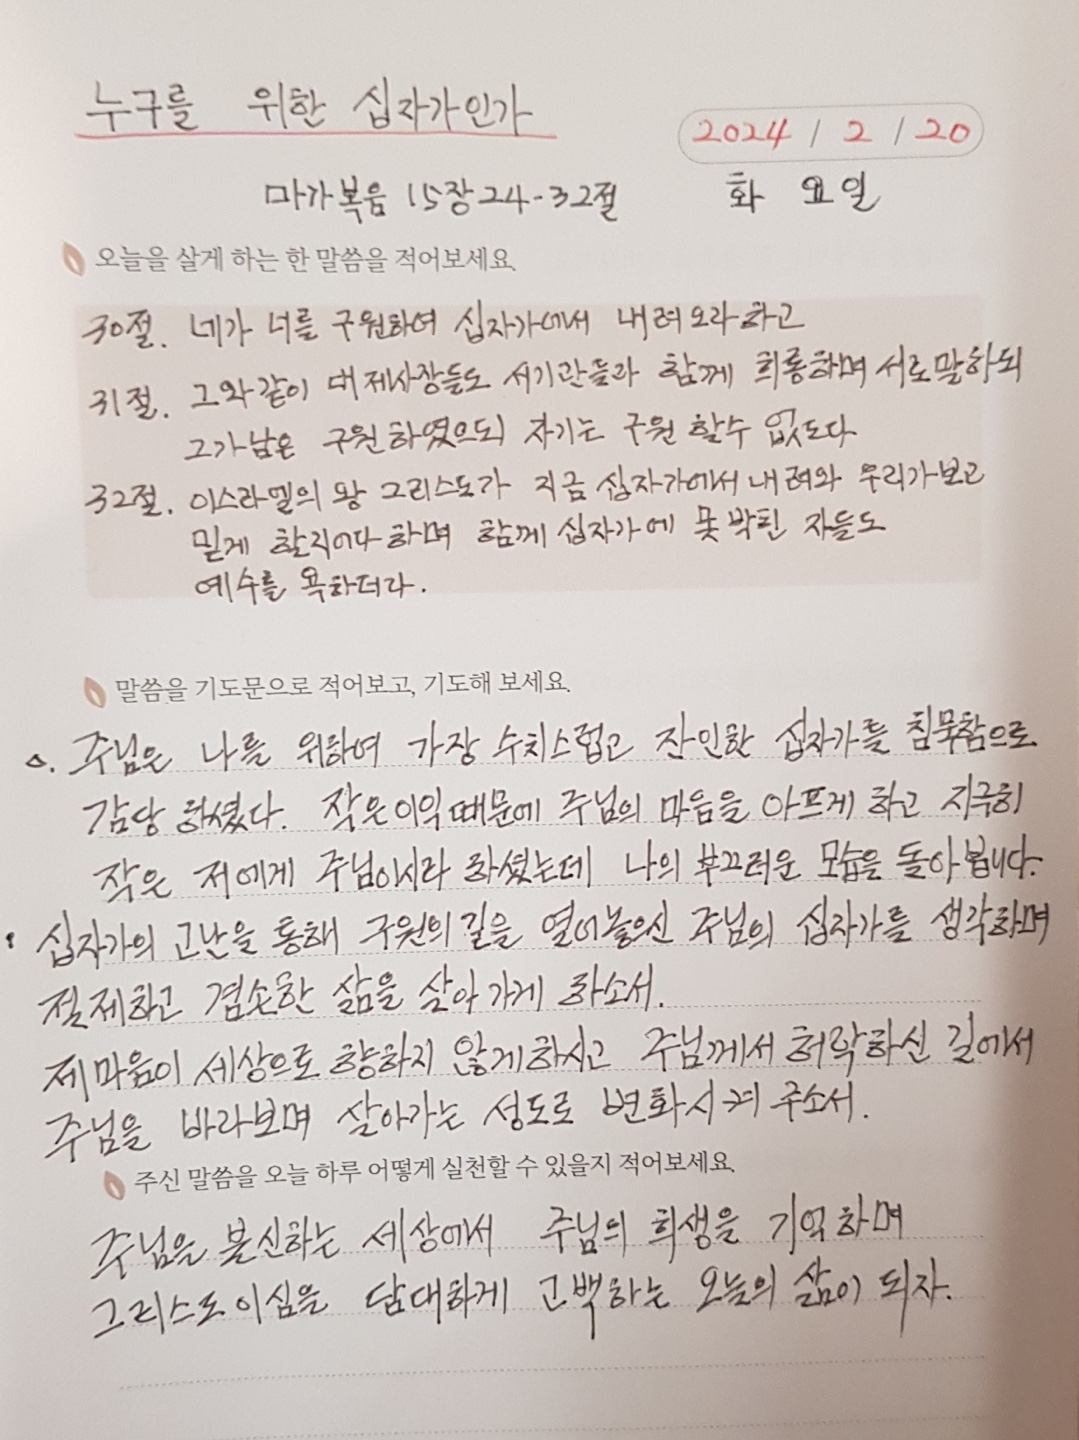 누구를 위한 십자가인가
2024 / 2 / 20
마가복음 15장 24-32절 화 요일
오늘을 살게 하는 한 말씀을 적어보세요.
30절. 네가 너를 구원하여 십자가에서 내려오라 하고
31절. 그와 같이 대제사장들도 서기관들과 함께 희롱하며 서로 말하되
그가 남은 구원하였으되 자기는 구원 할수 없도다
32절. 이스라엘의 왕 그리스도가 지금 십자가에서 내려와 우리가 보고
믿게 할지어다 하며 함께 십자가에 못 박힌 자들도
예수를 욕하더라.
말씀을 기도문으로 적어보고, 기도해 보세요.
주님은 나를 위하여 가장 수치스럽고 잔인한 십자가를 침묵함으로
감당 하셨다. 작은 이익 때문에 주님의 마음을 아프게 하고 지극히
작은 저에게 주님이시라 하셨는데 나의 부끄러운 모습을 돌아봅니다.
십자가의 고난을 통해 구원의 길을 열어놓으신 주님의 십자가를 생각하며
절제하고 겸손한 삶을 살아가게 하소서.
제 마음이 세상으로 향하지 않게 하시고 주님께서 허락하신 길에서
주님을 바라보며 살아가는 성도로 변화시켜 주소서.
주신 말씀을 오늘 하루 어떻게 실천할 수 있을지 적어보세요.
주님을 불신하는 세상에서 주님의 희생을 기억하며
그리스도이심을 담대하게 고백하는 오늘의 삶이 되자.